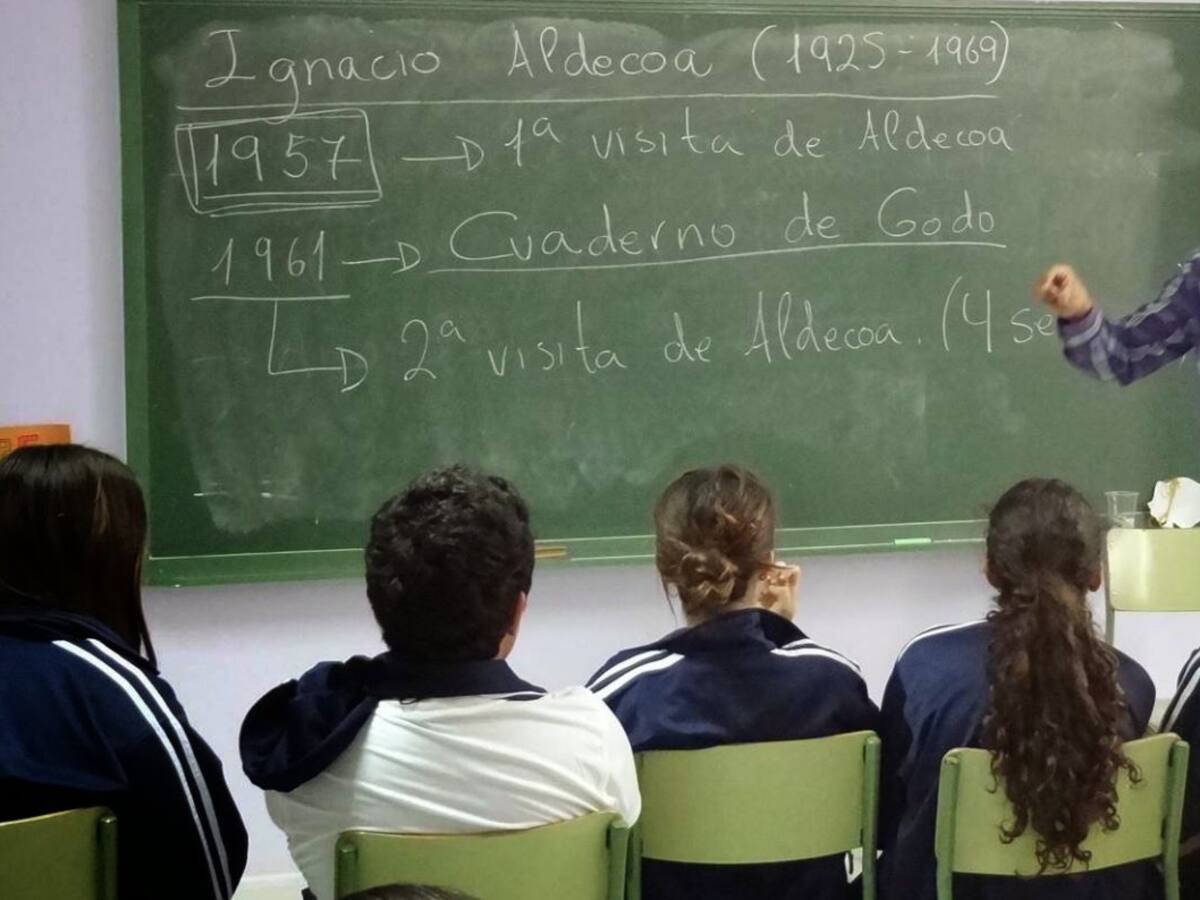 Ignacio Aldecoa (1925-1969)
1957 → 1ª visita de Aldecoa
1961 → Cuaderno de Godo
→ 2ª visita de Aldecoa. (4 se